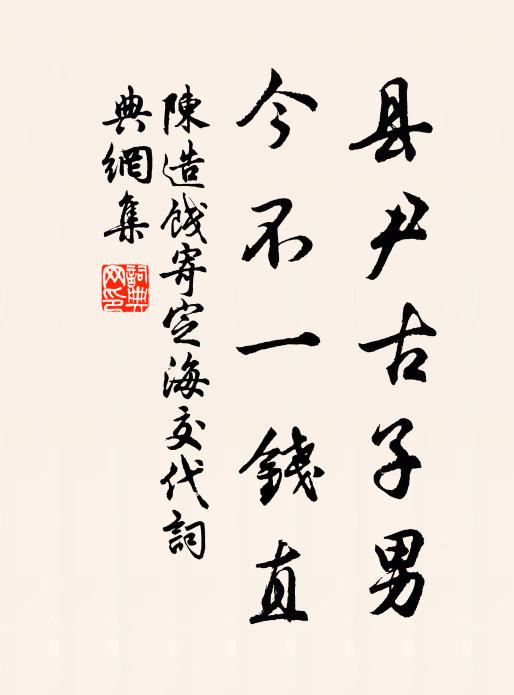 县尹古子男
今不一錢直
陳造餞寄定海交代詞
典網集
詞典
网印